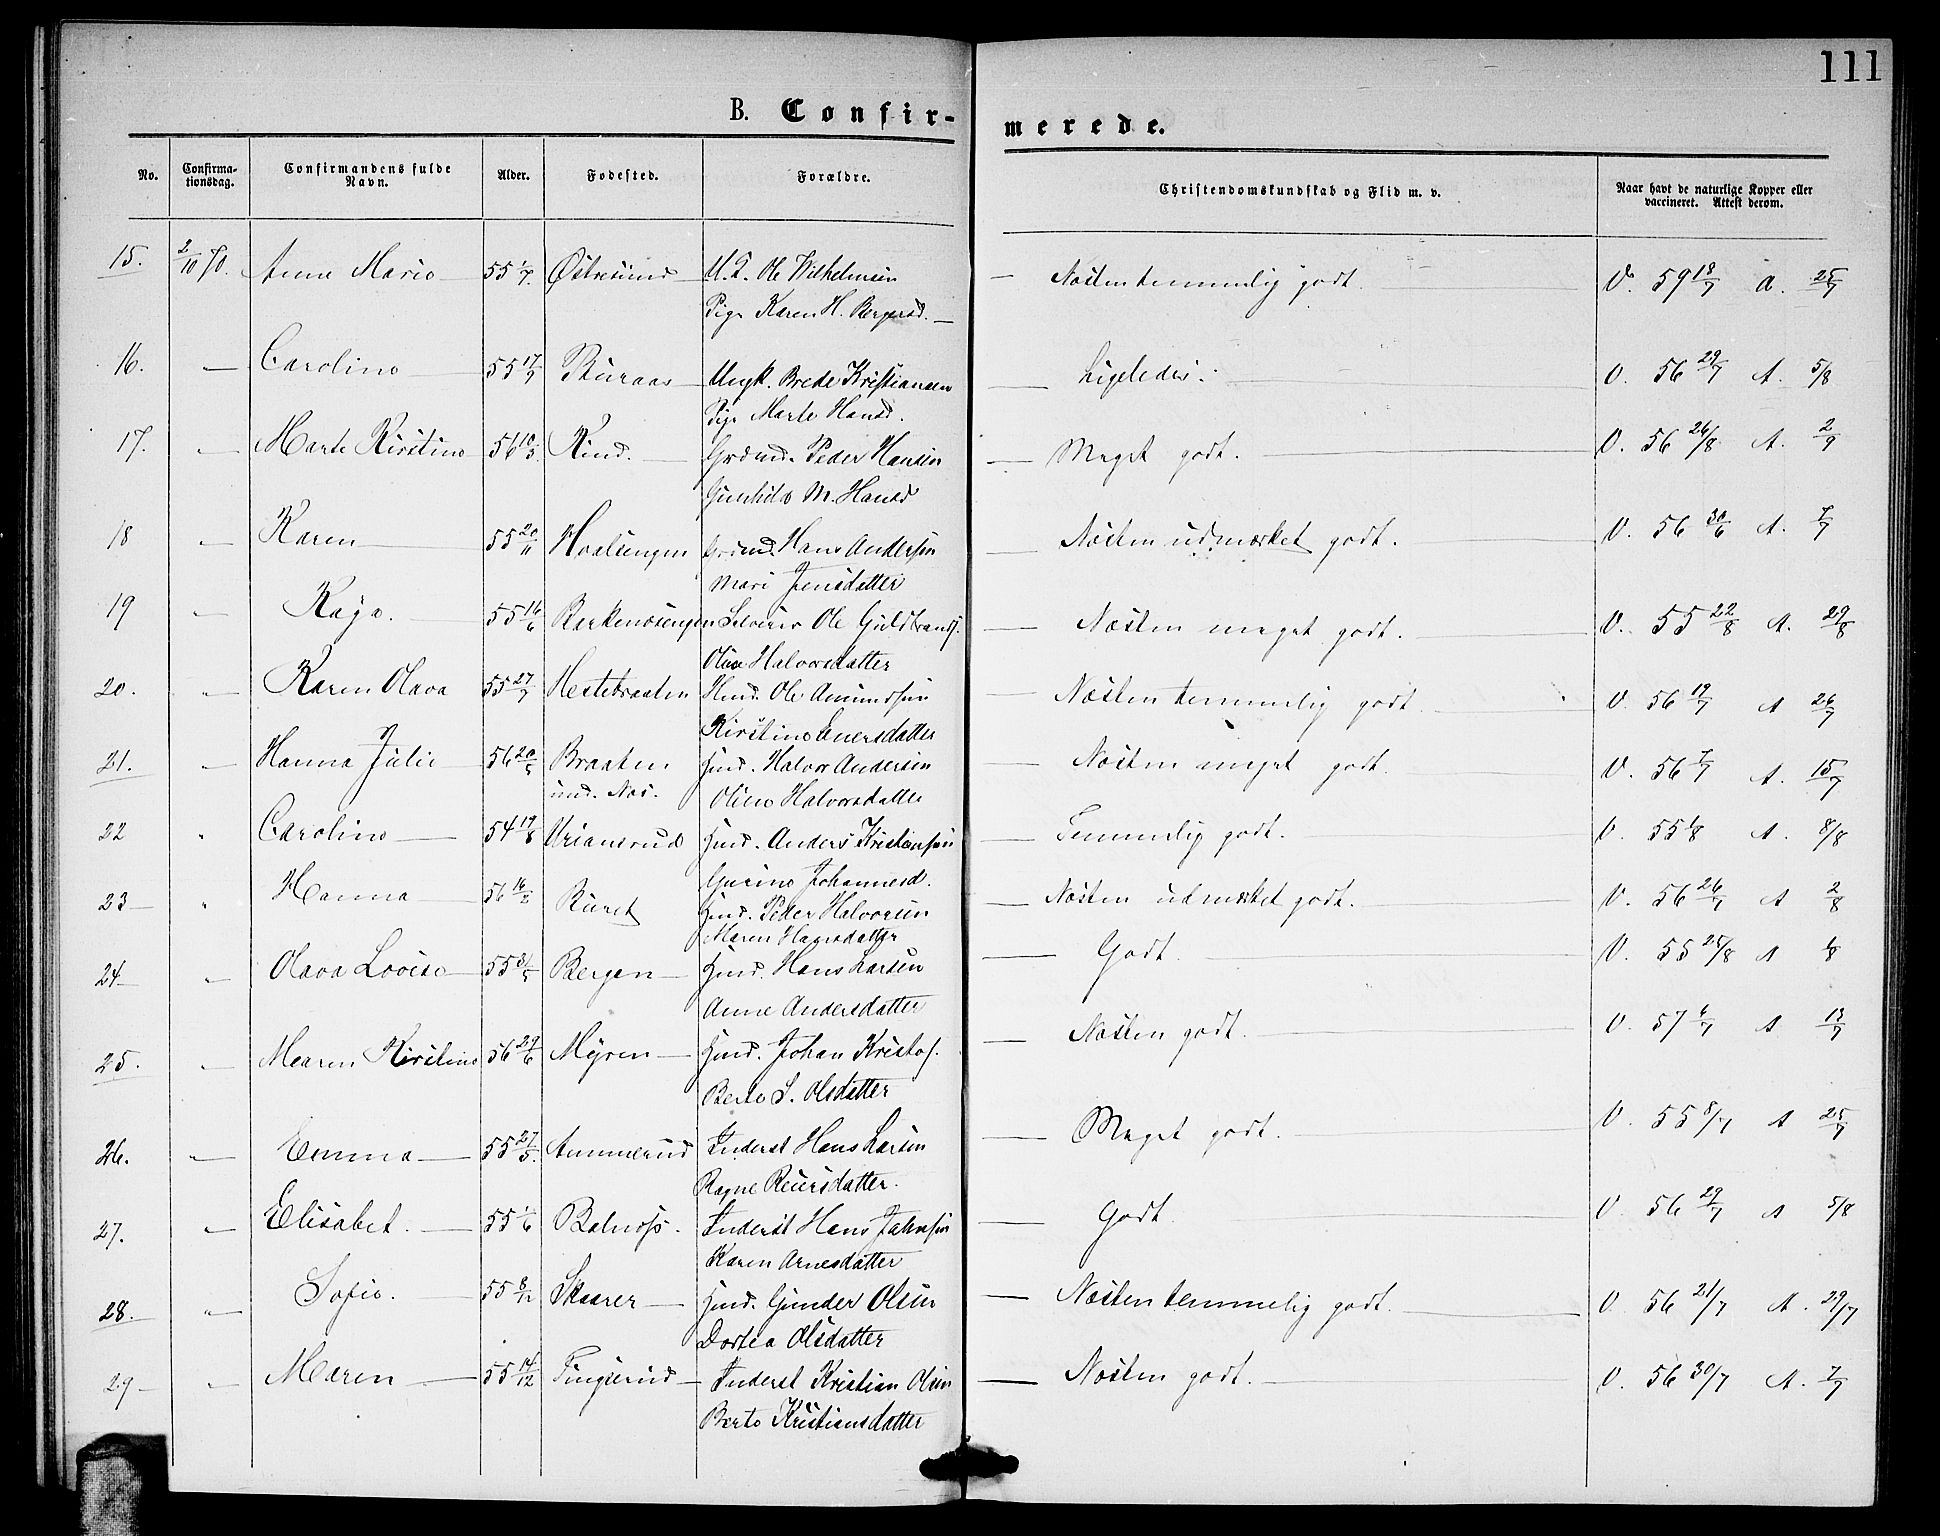 111
B. Confir-
merede.
No. Confirma-tionsdag. Confirmandens fulde Navn. Alder. Fodested. Forældre. Christendomskundskab og Flid m. v. Naar havt de naturlige Kopper eller vaccineret. Attest derom.
15. 2/10 70. Anna Marie 55 1/7. Østresund U. K. Ole Wilhelmsen Næsten temmelig godt. V. 59 18/7 a. 25/7
Pige Karen H. Bergersd.
16. Caroline 55 17/9 Buraas Ungk. Brede Kristiansen Ligeledes. V. 56 29/7 A. 5/8
Pige Marte Hansd.
17. Marte Kirstine 56 10/3. Rind. Grdmd. Peder Hansen Meget godt. V. 56 26/8 A. 2/9
Gunhild M. Hansd
18 Karen 55 20/11 Hvalsengen Grdmd. Hans Andersen Næsten udmærket godt. V. 56 30/6 A. 7/7
Mari Jensdatter
19 Kaja. 55 16/6 Ole Guldbrands. Næsten meget godt. V. 55 22/8 A. 29/8
Oline Halvorsdatter
20. Karen Olava 55 27/7 Hestebraaten Hmd. Ole Amundsen Næsten temmelig godt V. 56 19/7 A 26/7
Kirstine Enersdatter
21. Hanna Julie 56 20/5 Braaten Hmd. Halvor Andersen Næsten meget godt V. 56 7/7 A. 15/7
und. Næs. Oline Halvorsdatter
22 Caroline 54 19/8 Uriansrud Hmd. Anders Kristiansen Temmelig godt. V. 55 1/8 A. 8/8
Gurine Johannesd.
23 Hanna 56 16/2 Ruret Hmd. Peder Halvorsen Næsten udmærket godt. V. 56 26/7 A 2/8
Maren Hansdatter
24 Olava Lovise 55 31/5 Bergen Hmd. Hans Larsen Godt. V. 55 25/8 A 1/8
Anne Andersdatter
25. Maren Kirstine 56 29/6 Myren Hmd. Johan Kristof. Næsten godt. V. 57 6/7 A 13/7
Berte S. Olsdatter
26. Emma 55 27/5. Ammerud Inderst Hans Larsen Meget godt. V. 55 8/7 A 25/7
Ragne Reiersdatter.
27. Elisabet. 55 1/6 Inderst Hans Jahnsen Godt V. 56 29/7 A 5/8
Karen Arnesdatter
28. Sofie. 55 8/12 Skaarer Hmd. Gunder Olsen Næsten temmelig godt. V. 56 21/7 A. 29/7
Dortea Olsdatter
29 Maren 55 14/12 Tingerud Inderst Kristian Olsen Næsten godt. V. 56 30/7 A. 7/7
Berte Kristiansdatter